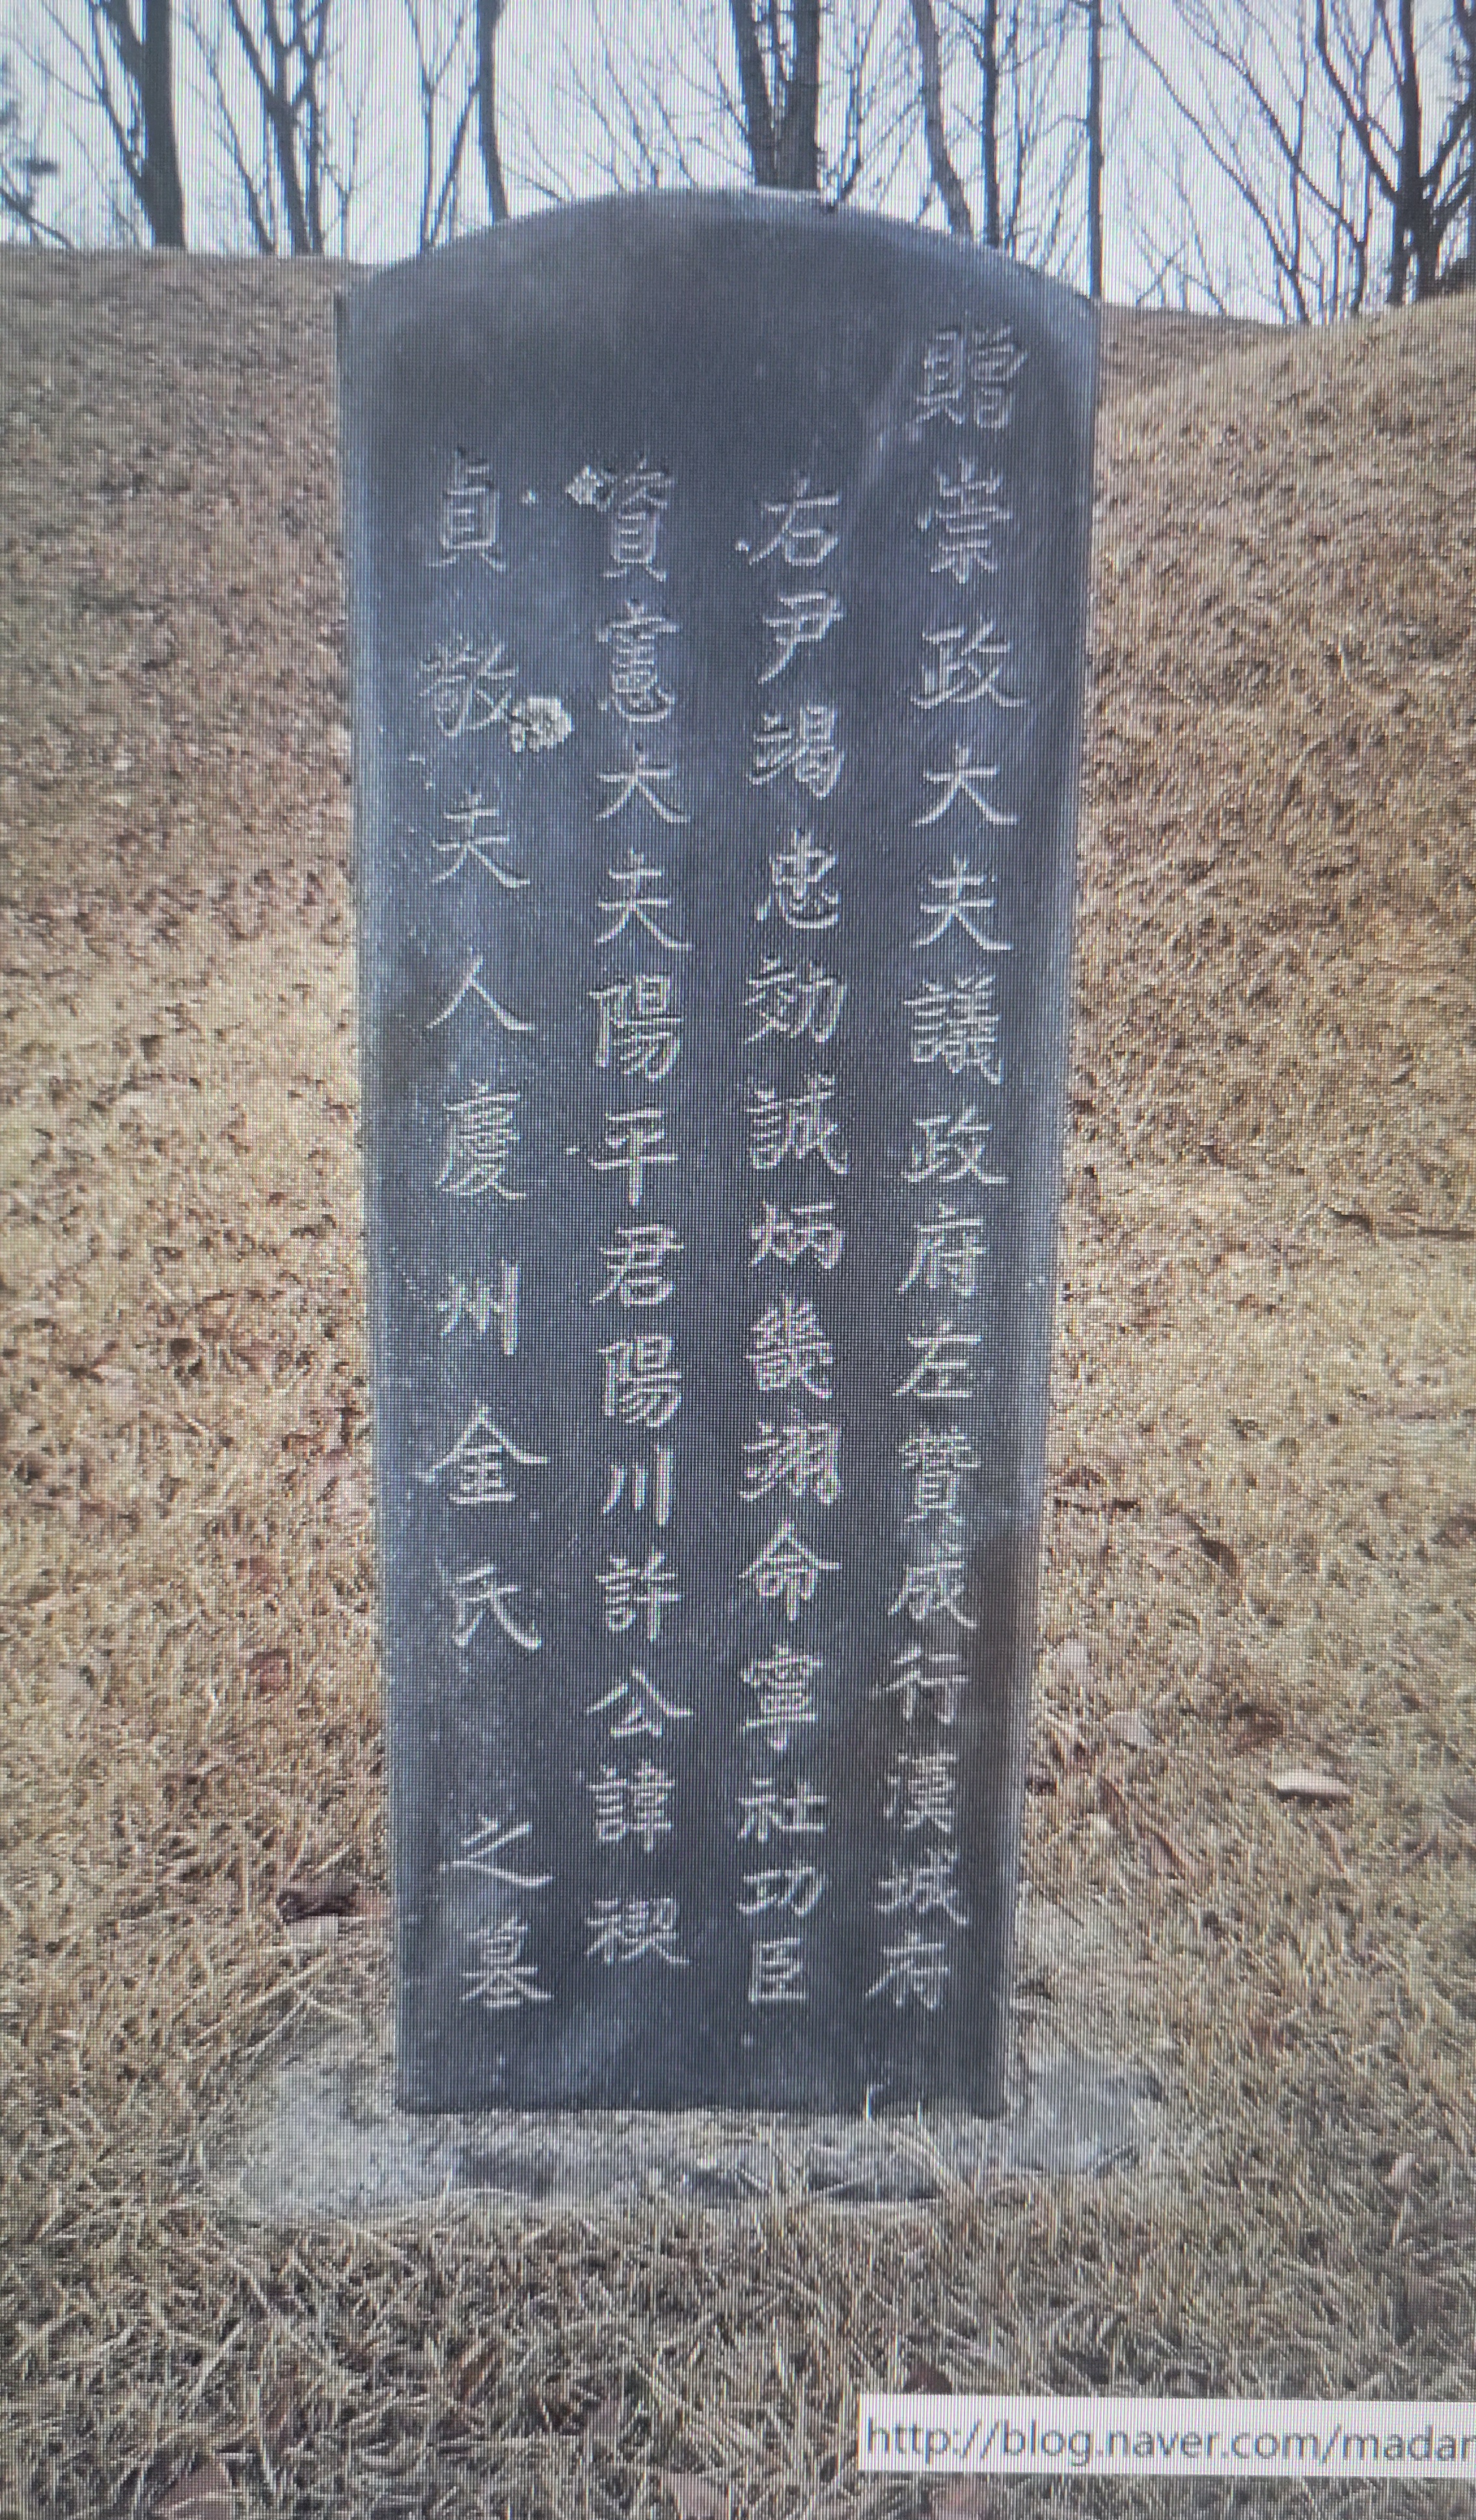 贈崇政大夫議政府左贊成行漢城府
右尹竭忠効誠炳幾翊命寧社功臣
資憲大夫陽平君陽川許公諱禊
貞敬夫人慶州金氏 之墓
http://blog.naver.com/madan